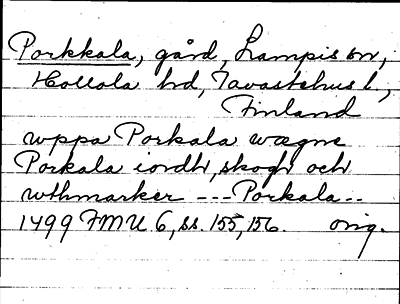 Porkkala, gård, Lampis sn,
Hollola hd, Tavastehus l,
Finland
wppa Porkala wægne
Porkala iordh, skogh och
wthmarker --- Porkala--
1499 FMU 6, ss. 155, 156. orig.